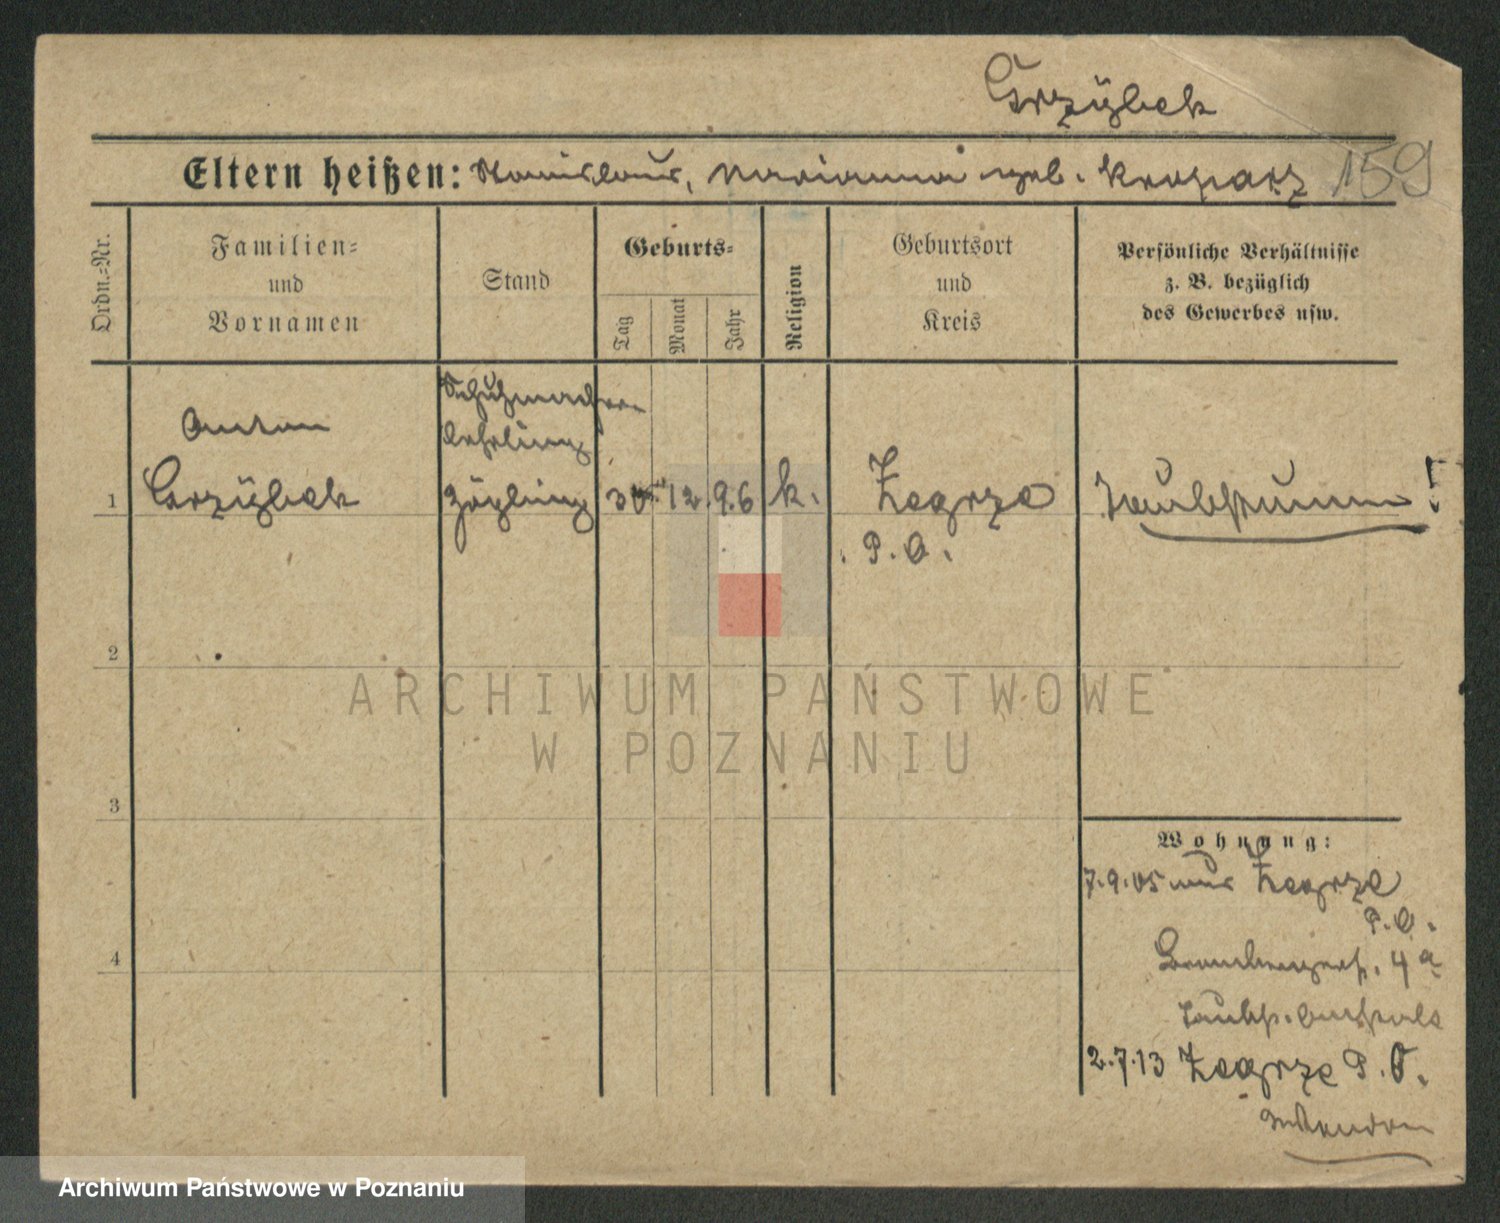 Grzÿbek
Eltern heißen: Stanislaus, Marianna geb. 159
Ordn.-Nr.
Familien-
und
Vornamen
Stand
Geburts-
Tag
Monat
Jahr
Religion
Geburtsort
und
Kreis
Persönliche Verhältnisse
z. B. bezüglich
des Gewerbes usw.
Schuhmacher
lehrling
Anton
1 Grzÿbek Zögling 30 12. 96 k. Zagrze Taubstumm!
P. O.
2
3
4
Wohnung:
7.9.05 aus Zagrze
P. O.
Brombergerst. 4a
Taubst. Anstalt
2.7.13 Zagrze P. O.
ARCHIWUM PAŃSTWOWE
W POZNANIU
Archiwum Państwowe w Poznaniu